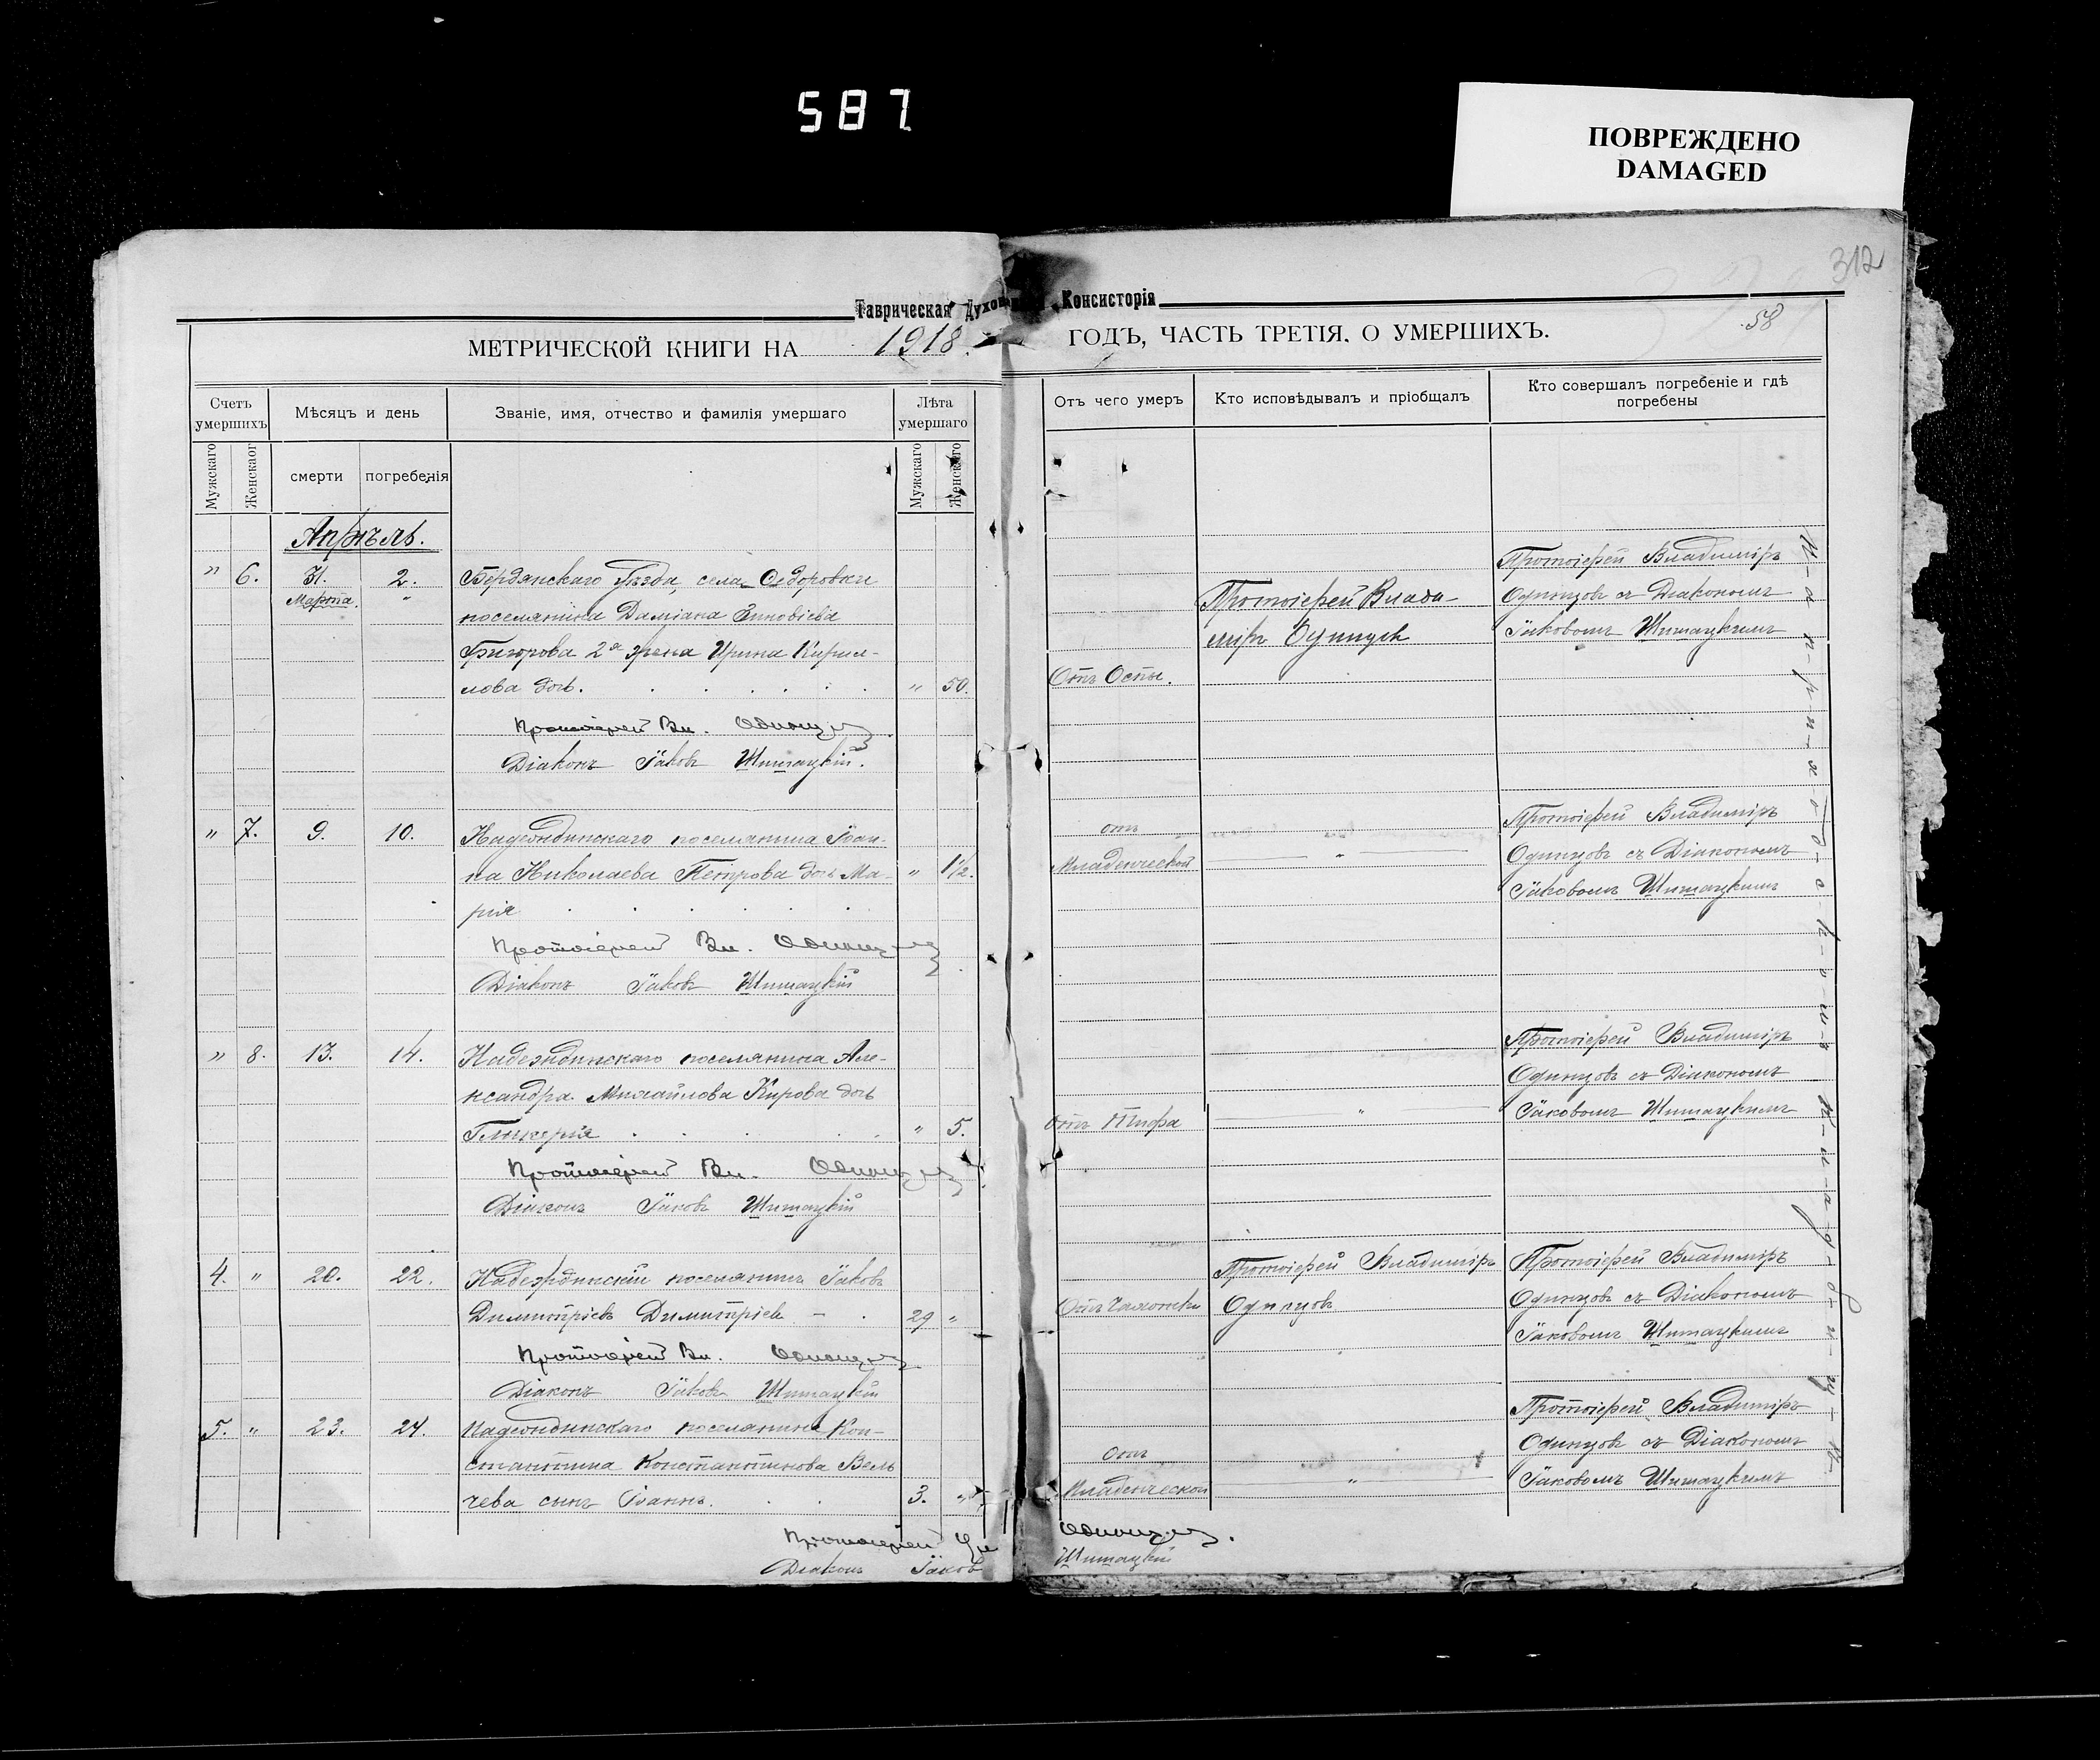 587
ПОВРЕЖДЕНО
DAMAGED
312
Таврическая Духовная Консисторія
58
МЕТРИЧЕСКОЙ КНИГИ НА 1918. ГОДЪ, ЧАСТЬ ТРЕТІЯ. О УМЕРШИХЪ.
Счетъ умершихъ
Мѣсяцъ и день
Званіе, имя, отчество и фамилія умершаго
Лѣта умершаго
Отъ чего умеръ
Кто исповѣдывалъ и пріобщалъ
Кто совершалъ погребеніе и гдѣ погребены
Мужскаго
Женскаго
смерти
погребенія
Мужскаго
Женскаго
Апрѣль.
" 6. 31. 2. Бердянскаго Уѣзда, села Ѳедоровки
Марта. "
поселянина Даміана Зиновіева
Григорова 2я жена Ирина Кирил-
лова дочь. " 50.
Отъ Оспы.
Протоіерей Влади-
міръ Одинцовъ
Протоіерей Владиміръ
Одинцовъ съ Діакономъ
Іаковомъ Шишацкимъ
Протоіерей Вл. Одинцовъ
Діаконъ Іаковъ Шишацкій.
" 7. 9. 10. Надеждинскаго поселянина Іоан-
на Николаева Петрова дочь Ма- " 1½.
рія
отъ
Младенческой
"
Протоіерей Владиміръ
Одинцовъ съ Діакономъ
Іаковомъ Шишацкимъ
Протоіерей Вл. Одинцовъ
Діаконъ Іаковъ Шишацкій
" 8. 13. 14. Надеждинскаго поселянина Але-
ксандра Михайлова Кирова дочь
Гликерія " 5.
отъ Тифа
"
Протоіерей Владиміръ
Одинцовъ съ Діакономъ
Іаковомъ Шишацкимъ
Протоіерей Вл. Одинцовъ
Діаконъ Іаковъ Шишацкій
4. " 20. 22. Надеждинскій поселянинъ Іаковъ
Димитріевъ Димитріевъ 29 "
Отъ Чахотки
Протоіерей Владиміръ
Одинцовъ
Протоіерей Владиміръ
Одинцовъ съ Діакономъ
Іаковомъ Шишацкимъ
Протоіерей Вл. Одинцовъ
Діаконъ Іаковъ Шишацкій
5. " 23. 24. Надеждинскаго поселянина Кон-
стантина Константинова Вель
чева сынъ Іоаннъ. 3. "
отъ
Младенческой
"
Протоіерей Владиміръ
Одинцовъ съ Діакономъ
Іаковомъ Шишацкимъ
Н-а п-р-и-х-о-д-с-к-о-м-ъ к-л-а-д-б-и-щ-ѣ
Протоіерей Вл Одинцовъ.
Діаконъ Іаковъ Шишацкій